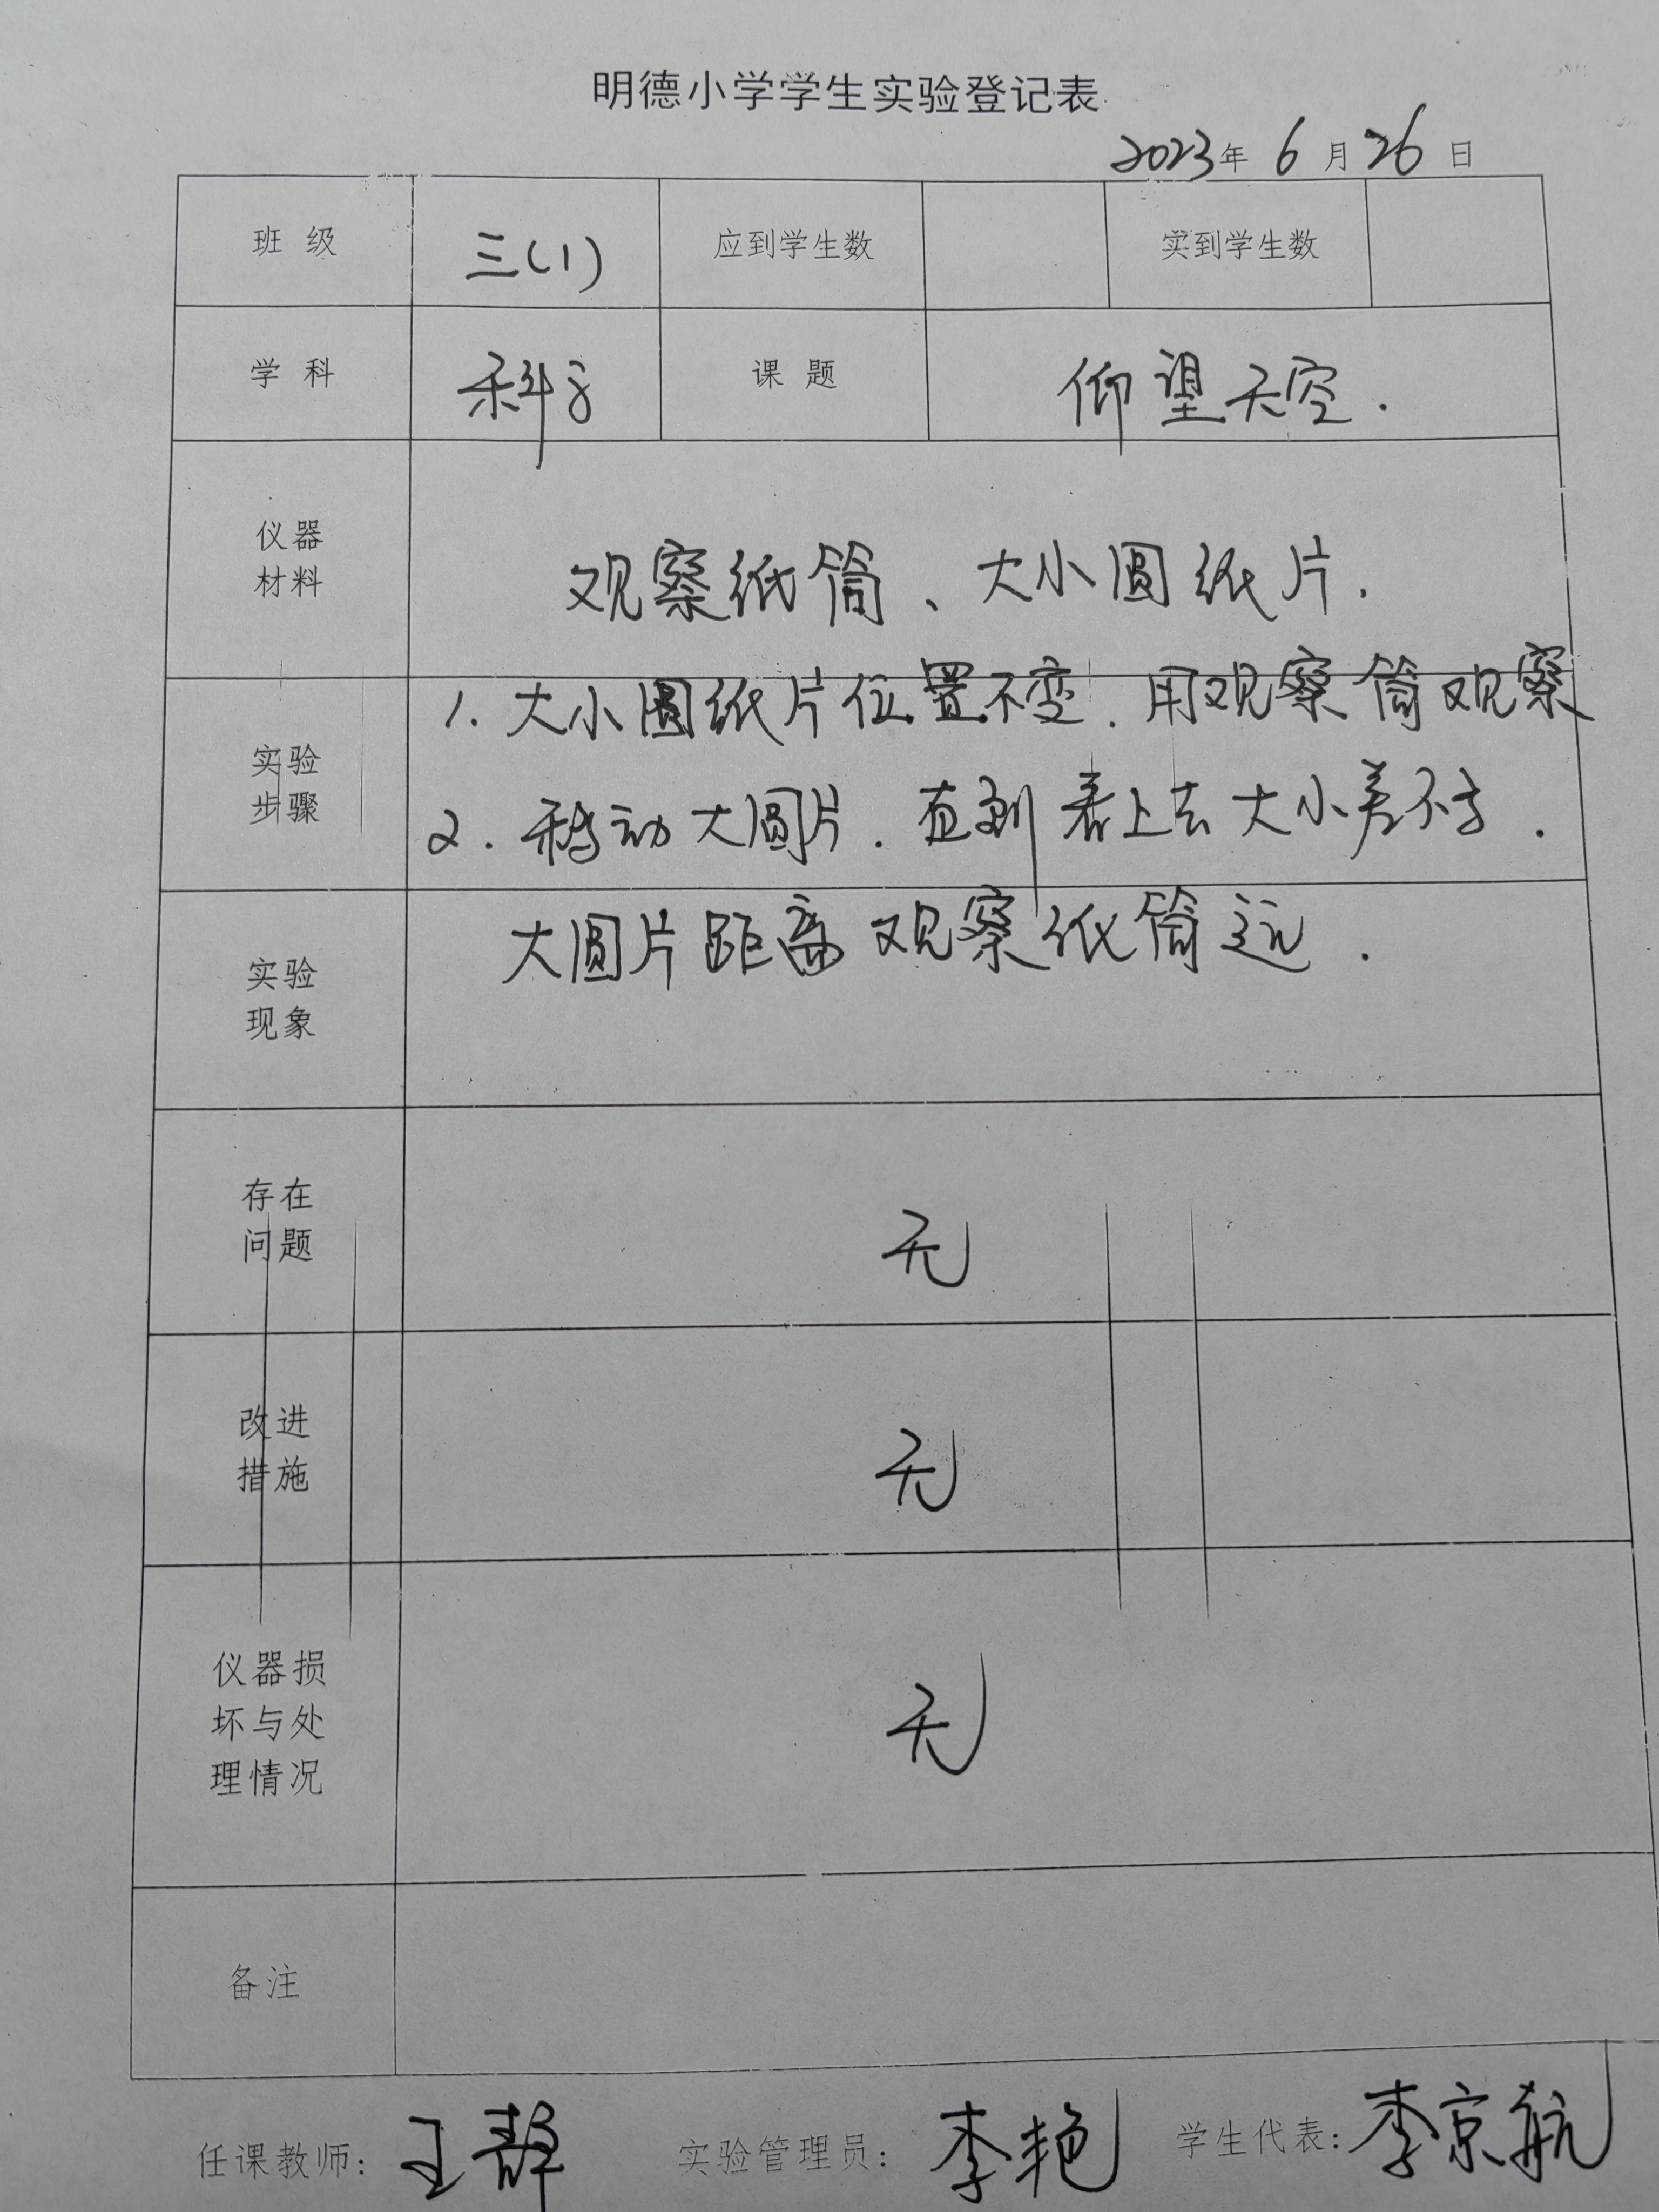 明德小学学生实验登记表
2023年 6 月 26 日
班 级 三(1) 应到学生数 实到学生数
学 科 科学 课 题 仰望天空.
仪器
材料
观察纸筒、大小圆纸片.
实验
步骤
1. 大小圆纸片位置不变.用观察筒观察
2. 移动大圆片.直到看上去大小差不多.
实验
现象
大圆片距离观察纸筒远.
存在
问题
无
改进
措施
无
仪器损
坏与处
理情况
无
备注
任课教师: 王静 实验管理员: 李艳 学生代表: 李京航